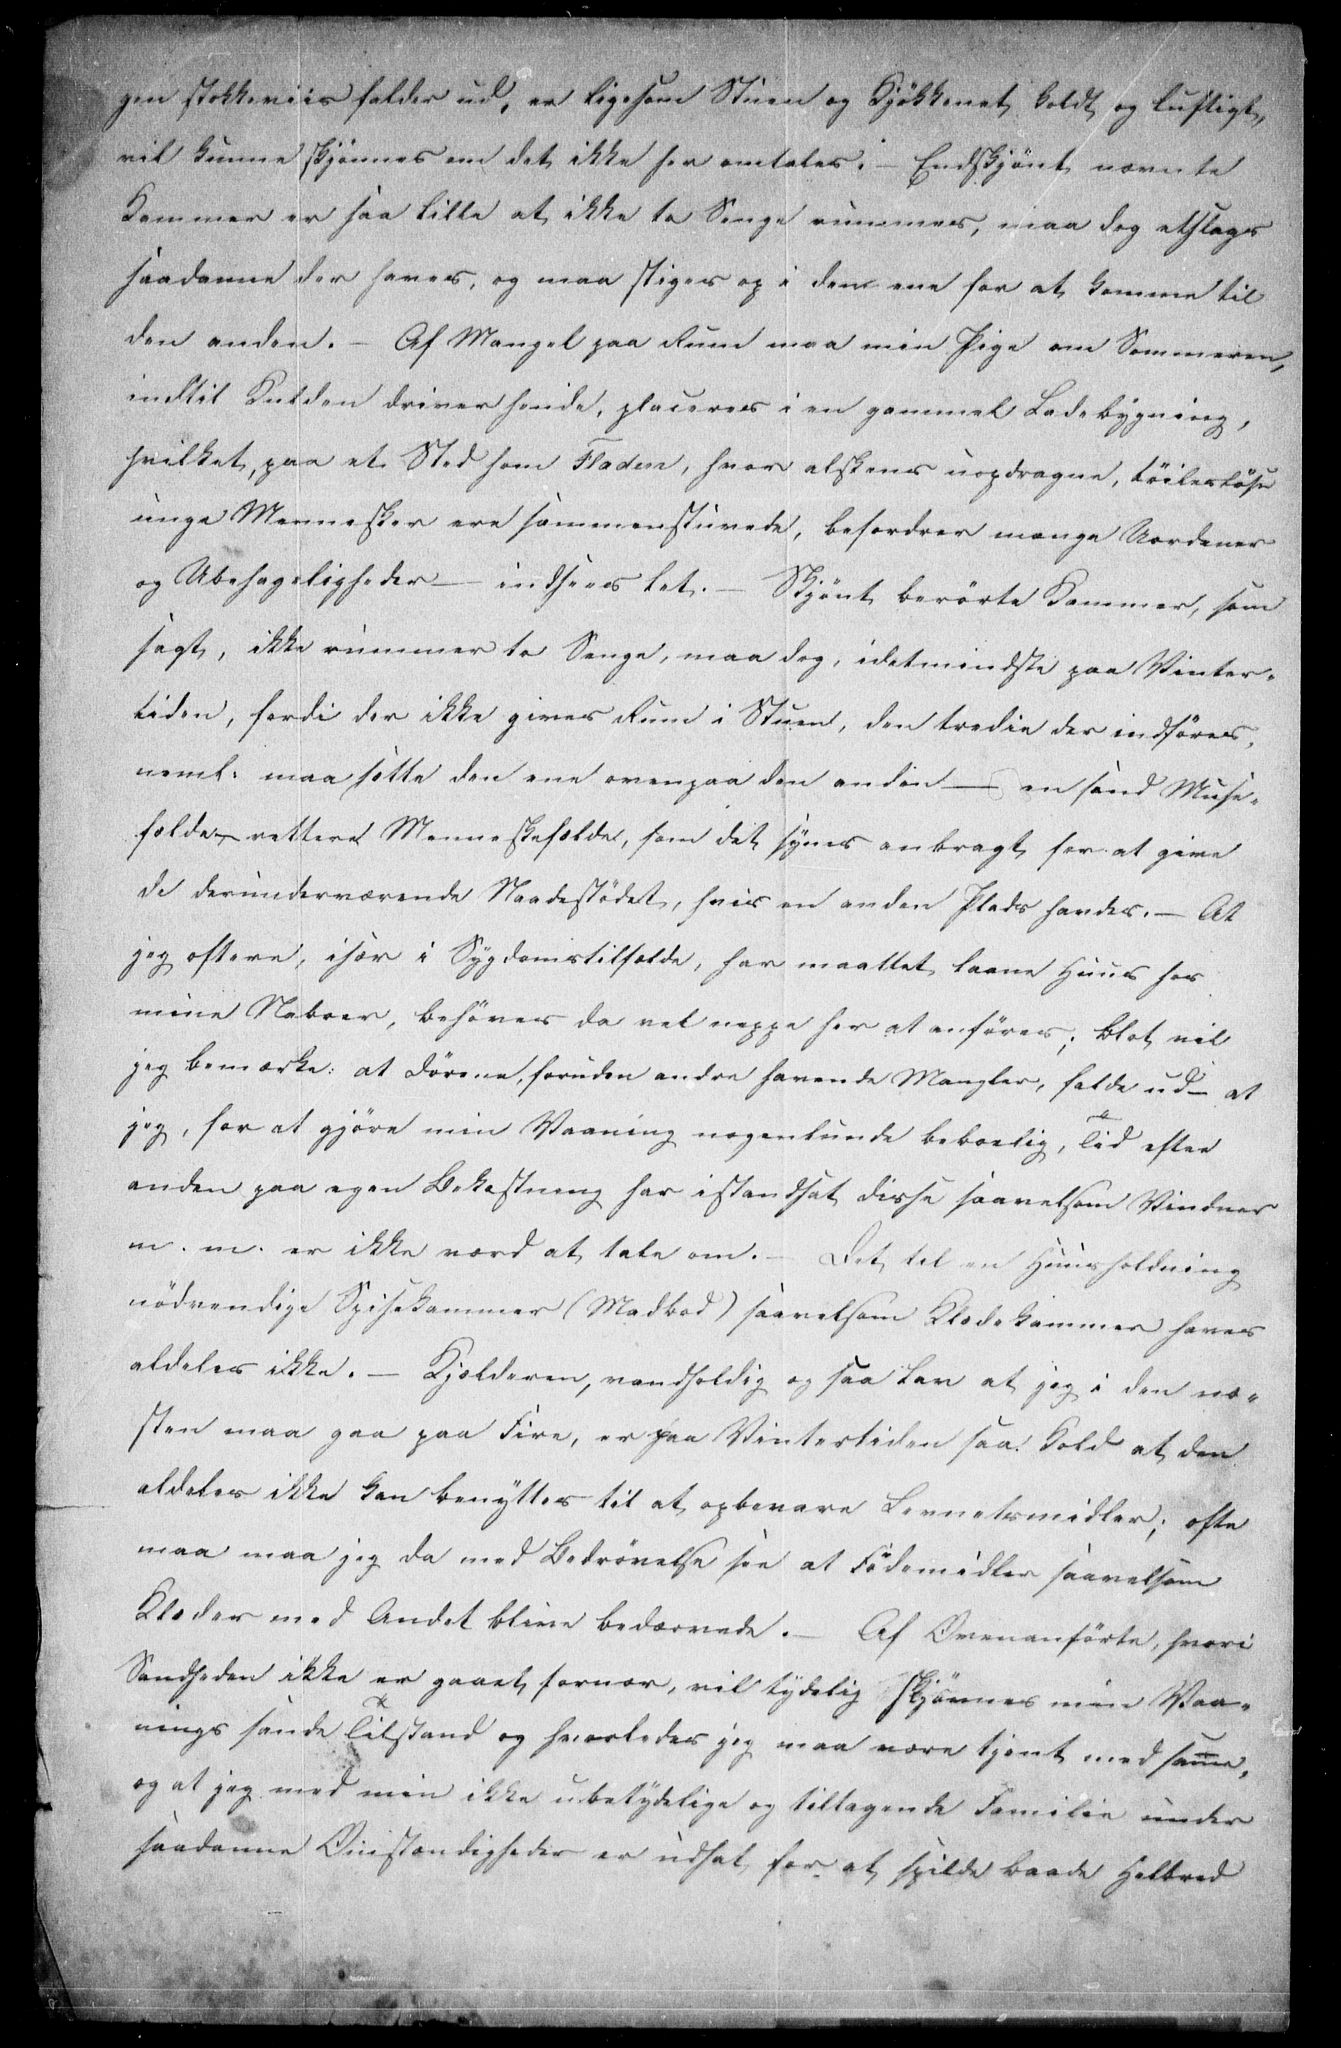 gen stokkeviis falder ud, er ligesom Stuen og Kjökkenet koldt og luftigt,
vil kunne skjönnes om det ikke her omtales. — Endskjönt nævnte
Kammer er saa lille at ikke to Senge rummes, maa dog etslags
saadanne der haves, og maa stiges op i den ene for at komme til
den anden. — Af Mangel paa Rum maa min Pige om Sommeren,
indtil Kulden driver hende, placeres i en gammel Ladebygning,
hvilket, paa et Sted som Fladen, hvor alskens uopdragne, töileslöse
unge Mennesker ere sammenstuvede, befordrer mange Uordener
og Ubehageligheder — indsees let. — Skjönt berörte Kammer, som
sagt, ikke rummer to Senge, maa dog, idetmindste paa Vinter-
tiden, fordi der ikke gives Rum i Stuen, den tredie der indföres,
neml: maa sætte den ene ovenpaa den anden — en sand Muse-
fælde, rettere Menneskefælde, som det synes anbragt for at give
de derunderværende Naadestödet, hvis en anden Plads havdes. — At
jeg oftere, især i Sygdomstilfælde, har maattet laane Huus hos
mine Naboer, behöver da vel neppe her at anföres; blot vil
jeg bemærke: at Dörene, foruden andre havende Mangler, falde ud — at
jeg, for at gjöre min Vaaning nogenlunde beboelig, Tid efter
anden paa egen Bekostning har istandsat disse saavelsom Vinduer
m. m. er ikke værd at tale om. — Det til en Huusholdning
nödvendige Spisekammer (Madbod) saavelsom Klædekammer haves
aldeles ikke. — Kjælderen, vandholdig og saa lav at jeg i den næ-
sten maa gaa paa Fire, er paa Vintertiden saa kold at den
aldeles ikke kan benyttes til at opbevare Levnetsmidler; ofte
maa maa jeg da med Bedrövelse see at Födemidler saavelsom
Klæder med Andet blive bedærvede. — Af Ovenanförte, hvori
Sandheden ikke er gaaet fornær, vil tydelig skjönnes min Vaa-
nings sande Tilstand og hvorledes jeg maa være tjent med samme,
og at jeg med min ikke ubetydelige og tiltagende Familie under
saadanne Omstændigheder er udsat for at spilde baade Helbred